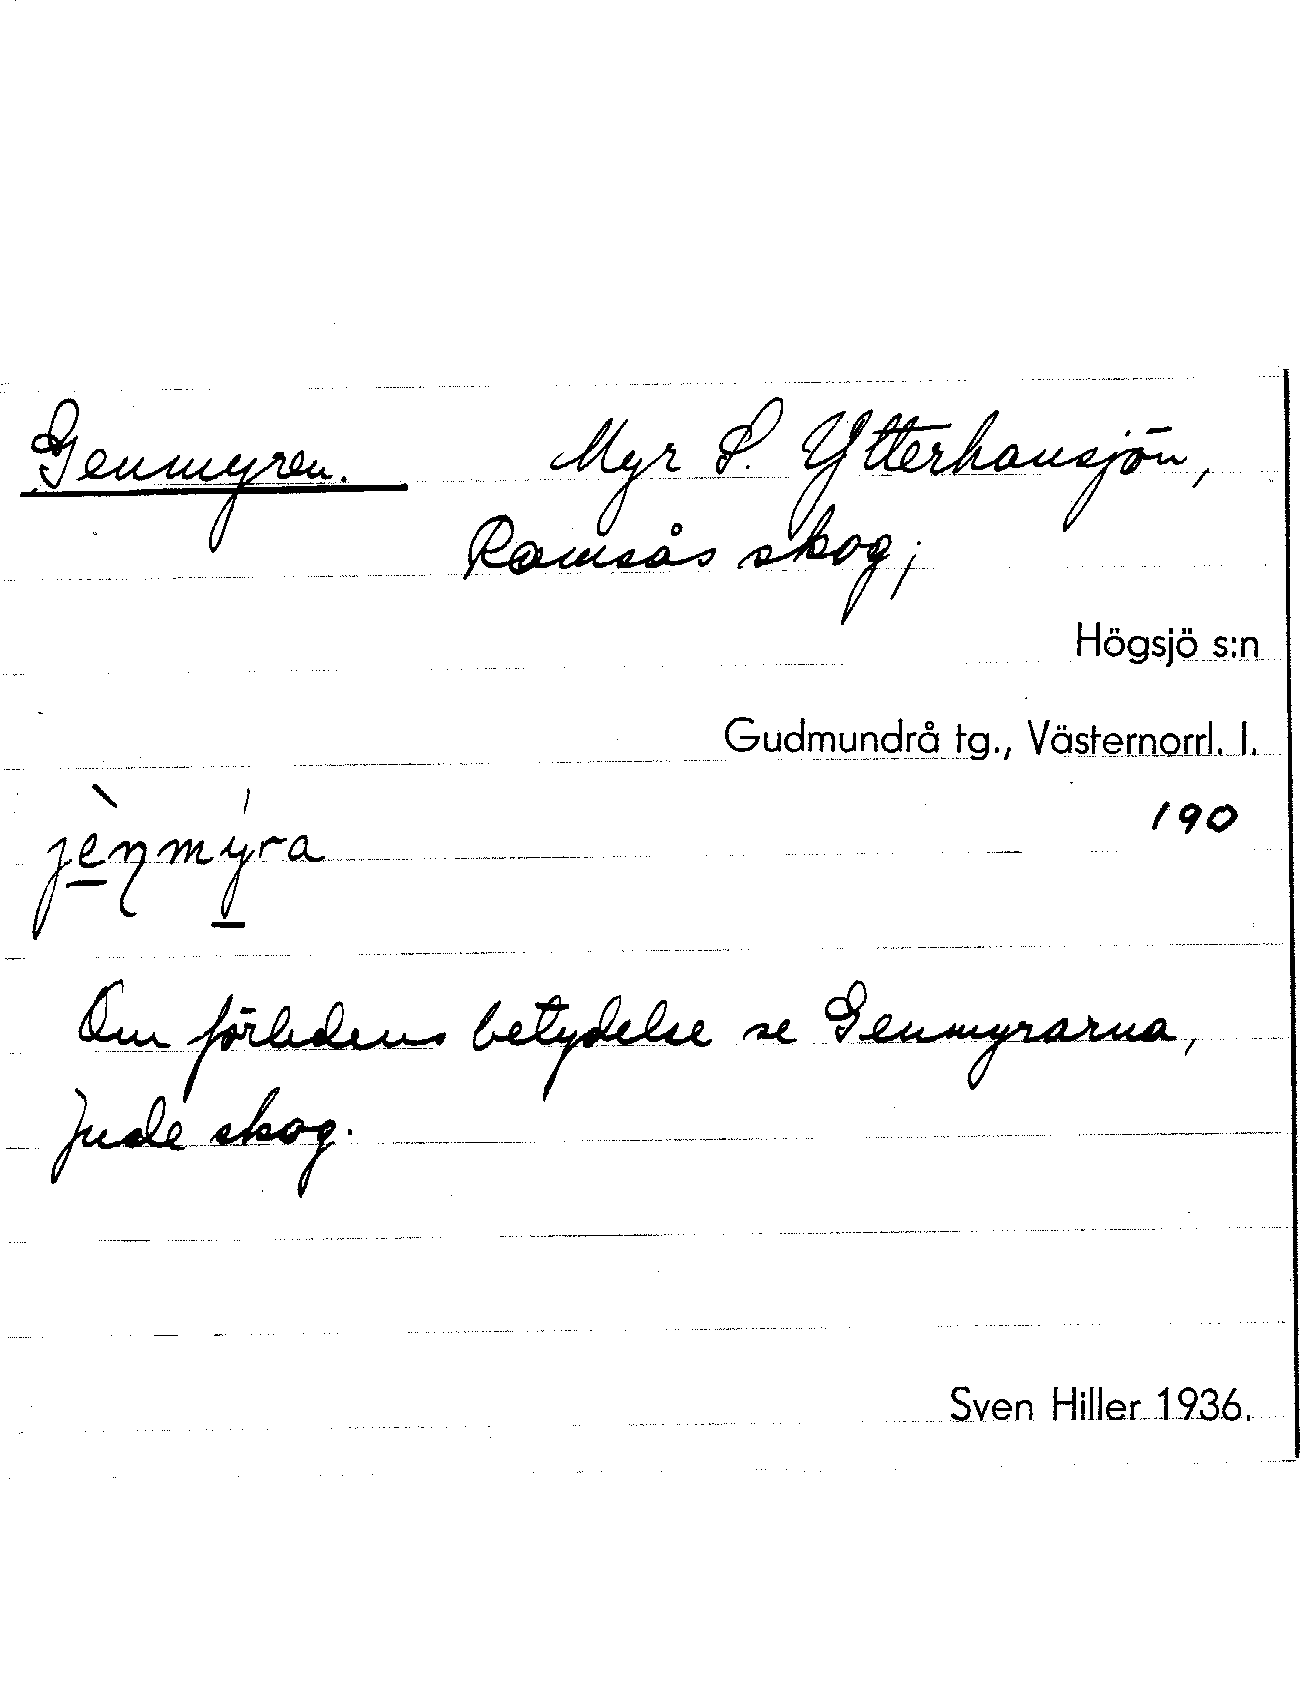 Genmyren. Myr S. Ytterhansjön,
Ramsås skog;
Högsjö s:n
Gudmundrå tg., Västernorrl. l.
190
jèn̡mýra
Om förledens betydelse se Genmyrarna,
Jude skog.
Sven Hiller 1936.